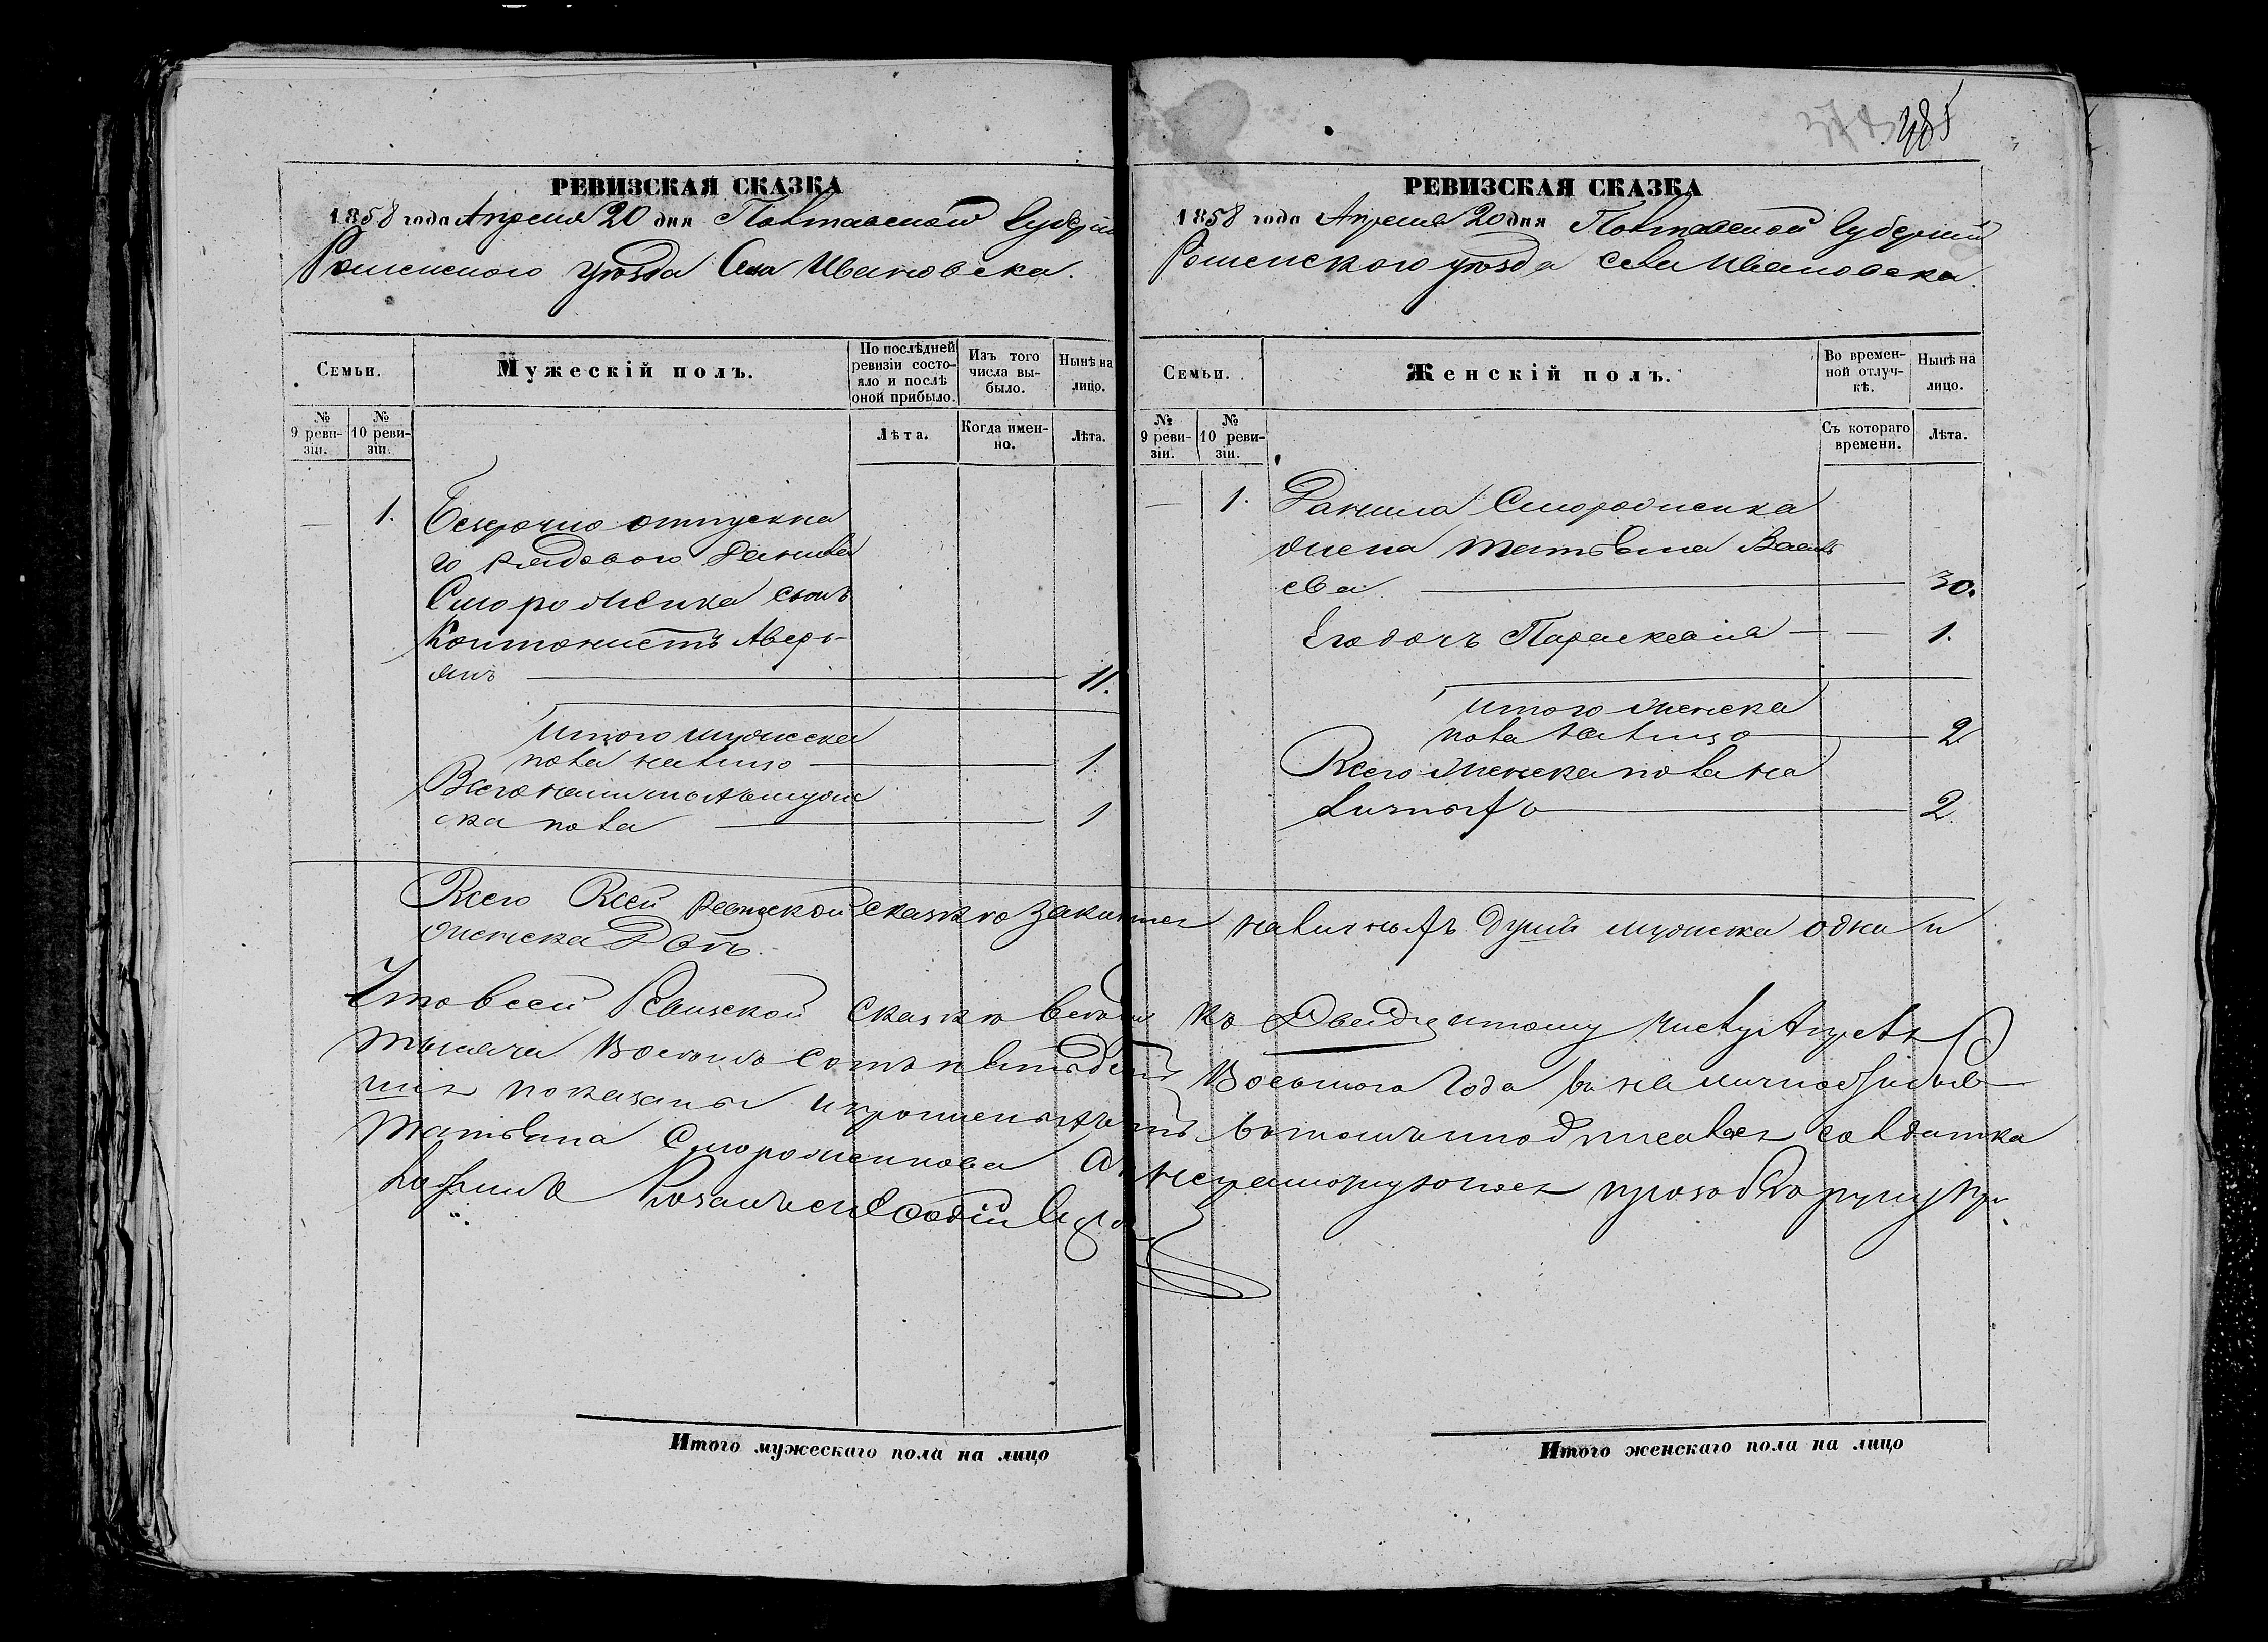 485
РЕВИЗСКАЯ СКАЗКА
1858 года Апреля 20 дня Полтавской Губерніи
Роменского уѣзда Села Ивановска.
Семьи.
Мужескій полъ.
По послѣдней
ревизіи состо-
яло и послѣ
оной прибыло.
Изъ того
числа вы-
было.
Нынѣ на
лицо.
№
9 реви-
зіи.
№
10 реви-
зіи.
Лѣта.
Когда имен-
но.
Лѣта.
— 1. Безсрочно отпускна
го рядового Данила
Смороженка сынъ
Кантонистъ Аверь-
янъ 11.
Итого мужеска
пола налицо 1.
Всего наличныхъ мужс
ска пола 1
РЕВИЗСКАЯ СКАЗКА
1858 года Апреля 20 дня Полтавской Губерніи
Роменского уѣзда села Ивановска.
Семьи.
Женскій полъ.
Во времен-
ной отлуч-
кѣ.
Нынѣ на
лицо.
№
9 реви-
зіи.
№
10 реви-
зіи.
Съ котораго
времени.
Лѣта.
— 1. Данила Смороженка
жена Татьяна Василь
ева 30.
Его дочь Параскевія — — 1.
Итого женска
пола налицо 2.
Всего женска пола на
личныхъ 2.
Всего Всей ревизской сказкѣ наличныхъ душъ мужска одна и
женска Двѣ.
Что в сей Ревизской сказкѣ къ Двадцятому числу Апреля
тысяча восемь сотъ пятьдесятъ Восьмого Года
показаны въ томъ подписалась солдатка
Татьяна Смороженкова
Итого мужескаго пола на лицо
Итого женскаго пола на лицо